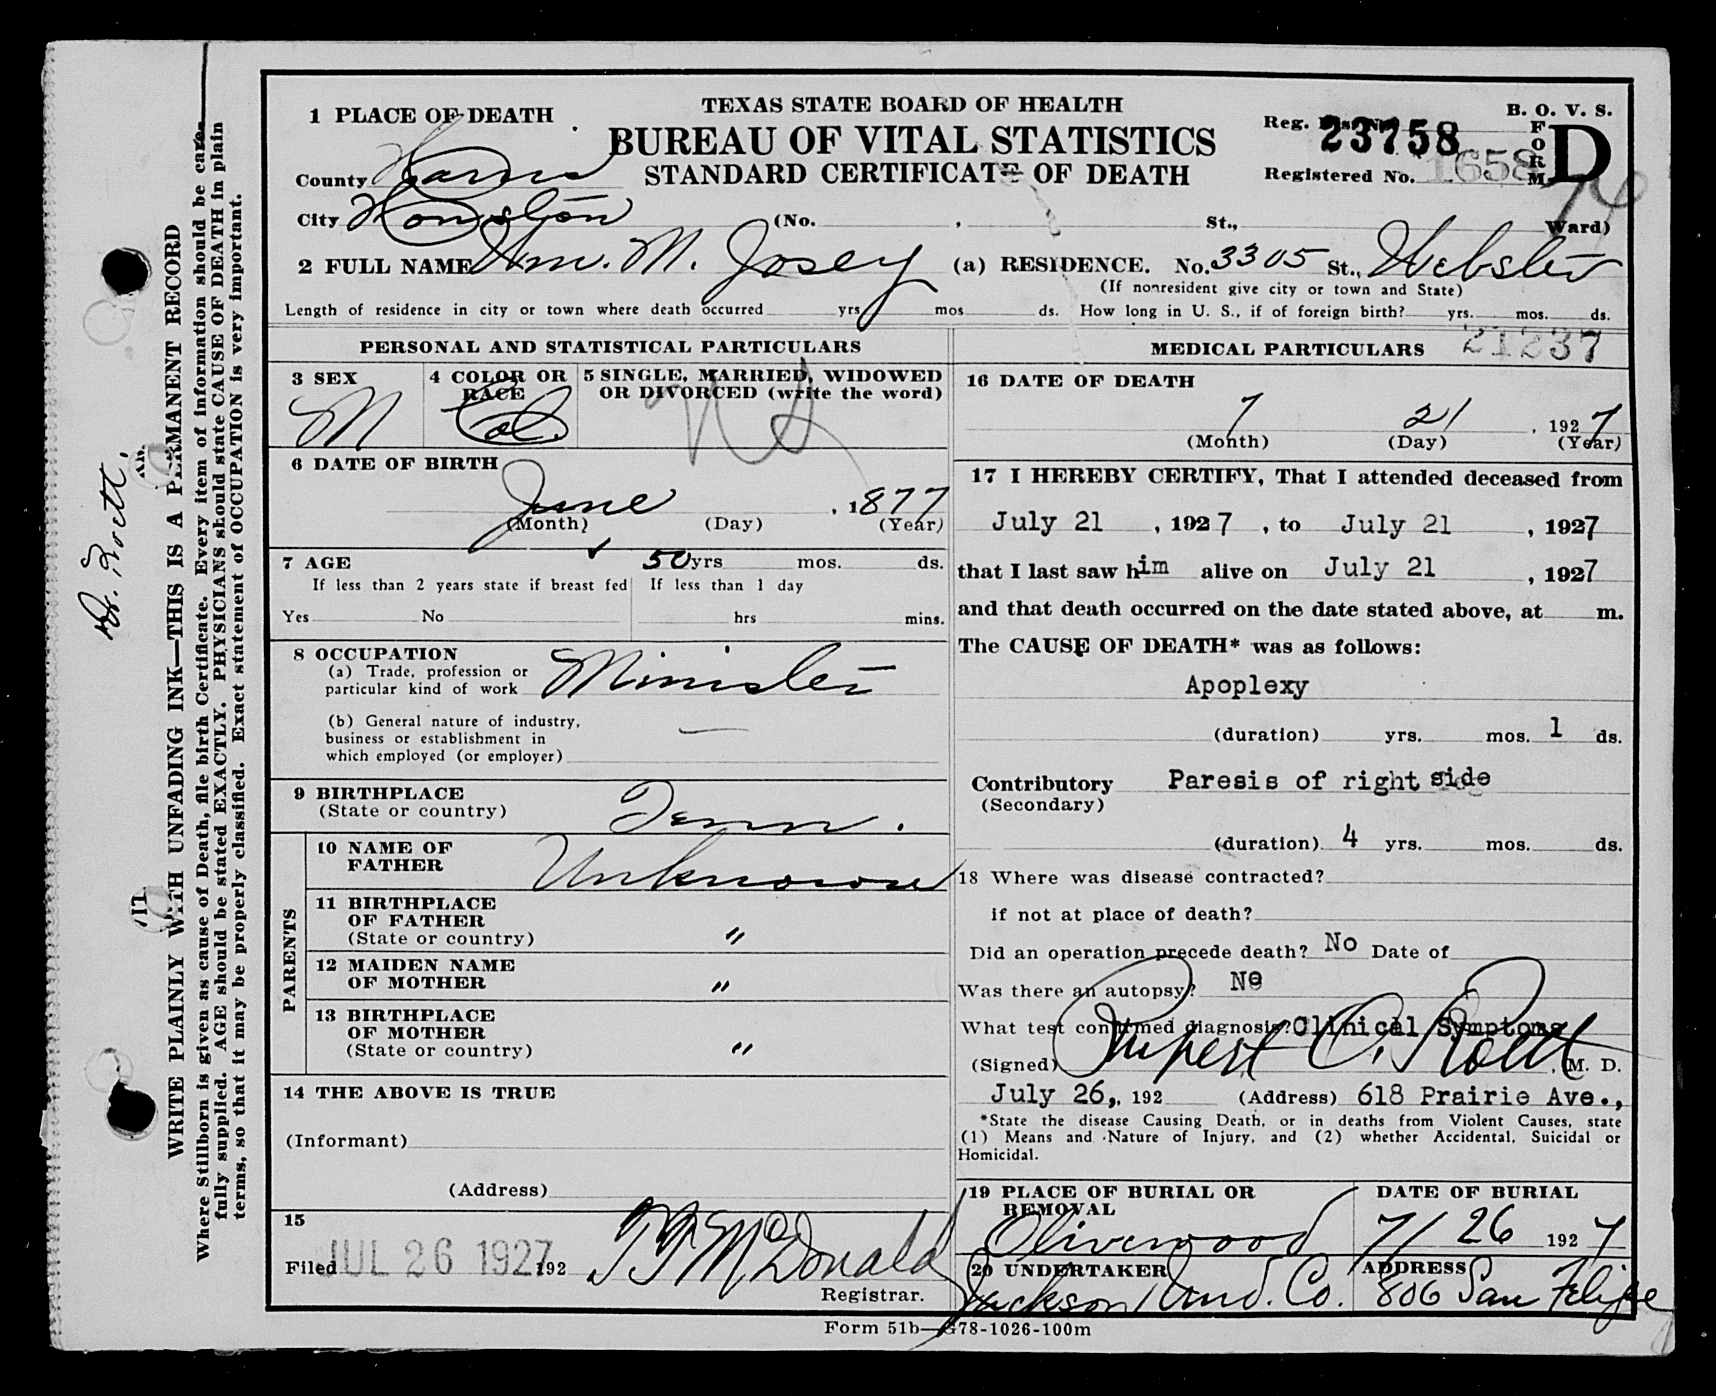 TEXAS STATE BOARD OF HEALTH
B. O. V. S.
1 PLACE OF DEATH
BUREAU OF VITAL STATISTICS
Reg. Dist. No. 23758
FORM D
STANDARD CERTIFICATE OF DEATH
County Harris
Registered No. 1658
City Houston (No. , St., Ward)
2 FULL NAME Wm. M. Josey (a) RESIDENCE. No. 3305 St., Webster
(If nonresident give city or town and State)
Length of residence in city or town where death occurred yrs. mos. ds. How long in U. S., if of foreign birth? yrs. mos. ds.
PERSONAL AND STATISTICAL PARTICULARS
3 SEX
M
4 COLOR OR RACE
Col.
5 SINGLE, MARRIED, WIDOWED
OR DIVORCED (write the word)
6 DATE OF BIRTH
June , 1877
(Month) (Day) (Year)
7 AGE 50 yrs mos. ds.
If less than 2 years state if breast fed
If less than 1 day
Yes No hrs mins.
8 OCCUPATION
(a) Trade, profession or
particular kind of work Minister
(b) General nature of industry,
business or establishment in
which employed (or employer)
9 BIRTHPLACE
(State or country) Tenn.
PARENTS
10 NAME OF
FATHER Unknown
11 BIRTHPLACE
OF FATHER
(State or country) "
12 MAIDEN NAME
OF MOTHER "
13 BIRTHPLACE
OF MOTHER
(State or country) "
14 THE ABOVE IS TRUE
(Informant)
(Address)
15
Filed JUL 26 1927 192 McDonald
Registrar.
MEDICAL PARTICULARS 21237
16 DATE OF DEATH
7 21 , 1927
(Month) (Day) (Year)
17 I HEREBY CERTIFY, That I attended deceased from
July 21 , 1927 , to July 21 , 1927
that I last saw him alive on July 21 , 1927
and that death occurred on the date stated above, at m.
The CAUSE OF DEATH* was as follows:
Apoplexy
(duration) yrs. mos. 1 ds.
Contributory Paresis of right side
(Secondary)
(duration) 4 yrs. mos. ds.
18 Where was disease contracted?
if not at place of death?
Did an operation precede death? No Date of
Was there an autopsy? No
What test confirmed diagnosis? Clinical Symptoms
(Signed) Rupert O. Roett , M. D.
July 26, , 192 (Address) 618 Prairie Ave.,
*State the disease Causing Death, or in deaths from Violent Causes, state
(1) Means and Nature of Injury, and (2) whether Accidental, Suicidal or
Homicidal.
19 PLACE OF BURIAL OR
REMOVAL
Olivewood
DATE OF BURIAL
7/26 1927
20 UNDERTAKER
Jackson Und. Co.
ADDRESS
806 San Felipe
Form 51b—G78-1026-100m
Dr. Roett.
WRITE PLAINLY WITH UNFADING INK—THIS IS A PERMANENT RECORD
Where Stilborn is given as cause of Death, file birth Certificate. Every item of information should be care-
fully supplied. AGE should be stated EXACTLY. PHYSICIANS should state CAUSE OF DEATH in plain
terms, so that it may be properly classified. Exact statement of OCCUPATION is very important.